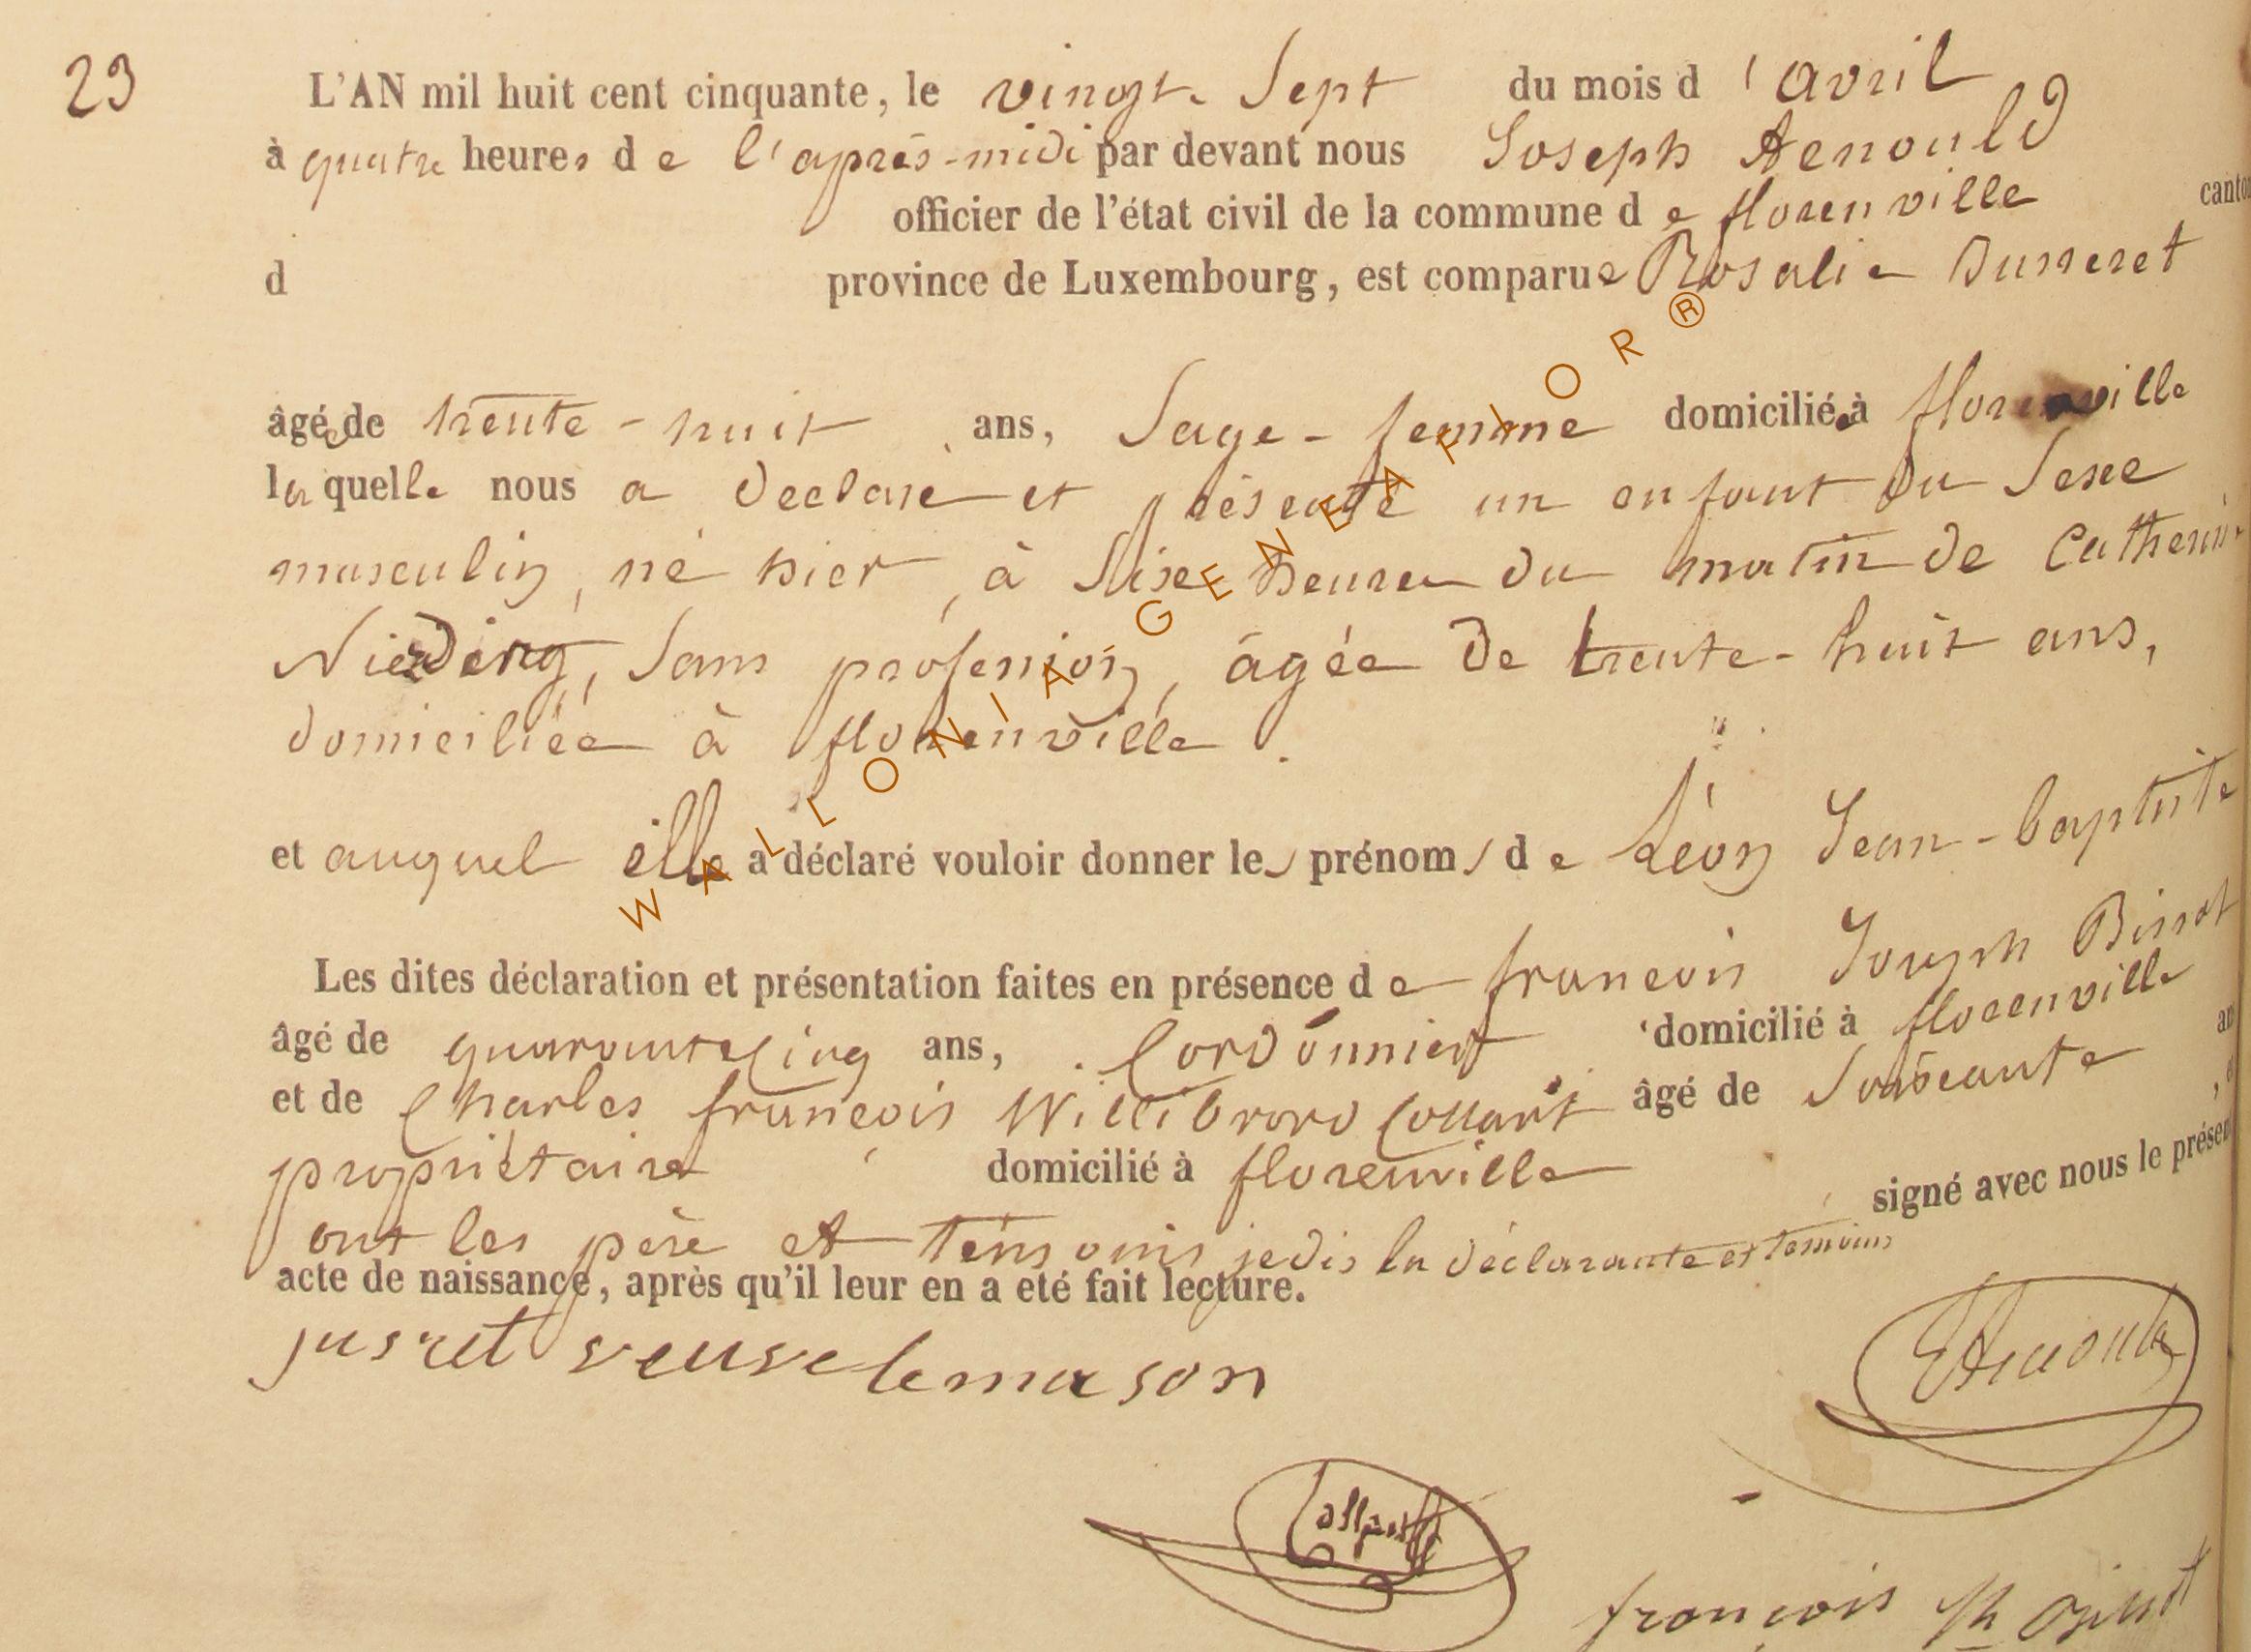 23
L'AN mil huit cent cinquante, le vingt-sept du mois d'avril
à quatre heures de l'après-midi par devant nous Joseph Arnould
officier de l'état civil de la commune de florenville canton
d province de Luxembourg, est comparue Rosalie
âgée de trente-huit ans, sage-femme domiciliée à florenville
laquelle nous a déclaré et présenté un enfant du sexe
masculin, né hier, à sixe heures du matin de Catherine
sans profession, âgée de trente-huit ans,
domiciliée à florenville.
et auquel elle a déclaré vouloir donner les prénoms de Léon Jean-baptiste
Les dites déclaration et présentation faites en présence de francois Joseph
âgé de quarante cinq ans, Cordonnier domicilié à florenville
et de Charles francois Willibrord Collart âgé de soixante
propriétaire domicilié à florenville
signé avec nous le présent
ont les père et témoins je dis la déclarante et témoins
acte de naissance, après qu'il leur en a eté fait lecture.
jusret veuve lemason
françois
WALLONIA GENEAFLOR ®